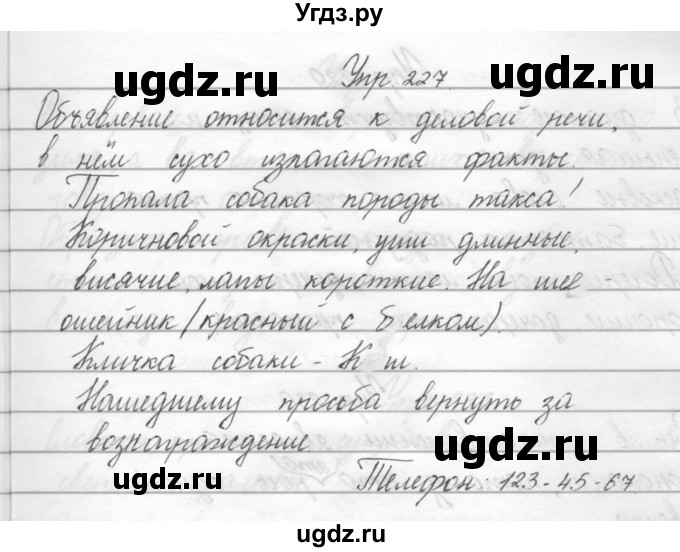 Угдз.ру
Упр. 227.
Объявление относится к деловой речи,
в нём сухо излагаются факты.
Пропала собака породы такса!
Коричновой окраски, уши длинные,
висячие, лапы короткие. На шее -
ошейник (красный с белком).
Кличка собаки - К ш.
Нашедшему просьба вернуть за
вознаграждение.
Телефон: 123-45-67
ugdz.ru
ugdz.ru
ugdz.ru
ugdz.ru
ugdz.ru
ugdz.ru
ugdz.ru
ugdz.ru
ugdz.ru